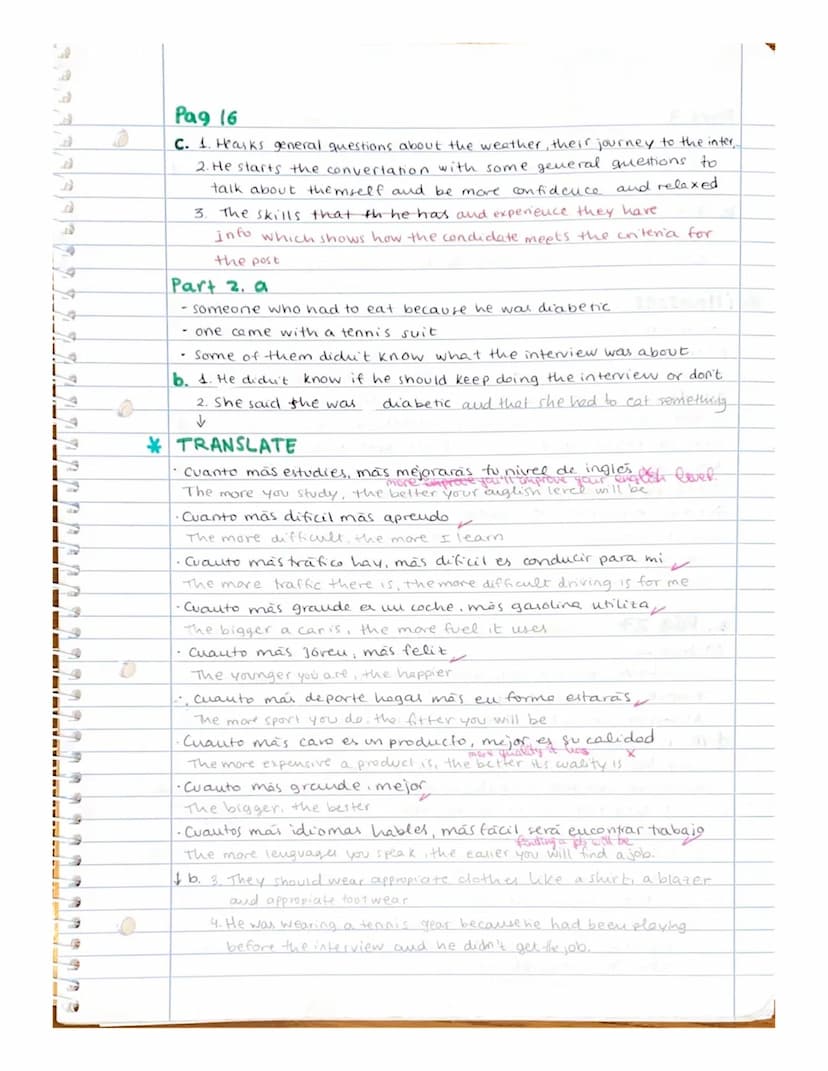 Pag 16
C. 1. He asks general questions about the weather, their journey to the inter.
2. He starts the convertation with some general questions to
talk about themself and be more confidence and relaxed
3. The skills that th he has and experience they have
info which shows how the candidate meets the criteria for
the post
Part 2. a
- someone who had to eat because he was diabetic
- one came with a tennis suit
- some of them didn't know what the interview was about
b. 1. He didn't know if he should keep doing the interview or don't
2. She said she was diabetic and that she had to eat something
↓
* TRANSLATE
· Cuanto más estudies, más mejorarás tu nivel de inglés
more improve you'll improve your english level
The more you study, the better your english level will be
· Cuanto más difícil más aprendo
The more difficult, the more I learn
· Cuanto más tráfico hay, más difícil es conducir para mi
The more traffic there is, the more difficult driving is for me
· Cuanto más grande es un coche, más gasolina utiliza
The bigger a car is, the more fuel it uses
· Cuanto más jóven, más feliz
The younger you are, the happier
· Cuanto más deporte hagas más en forma estarás
The more sport you do, the fitter you will be
· Cuanto más caro es un producto, mejor es su calidad
more quality it has x
The more expensive a product is, the better its wality is
· Cuanto más grande, mejor
The bigger, the better
· Cuantos más idiomas hables, más fácil será encontrar trabajo
finding a job will be
The more lenguages you speak, the easier you will find a job.
↓ b. 3. They should wear appropiate clothes like a shirt, a blazer
and appropiate footwear
4. He was wearing a tennis gear because he had been playing
before the interview and he didn't get the job.